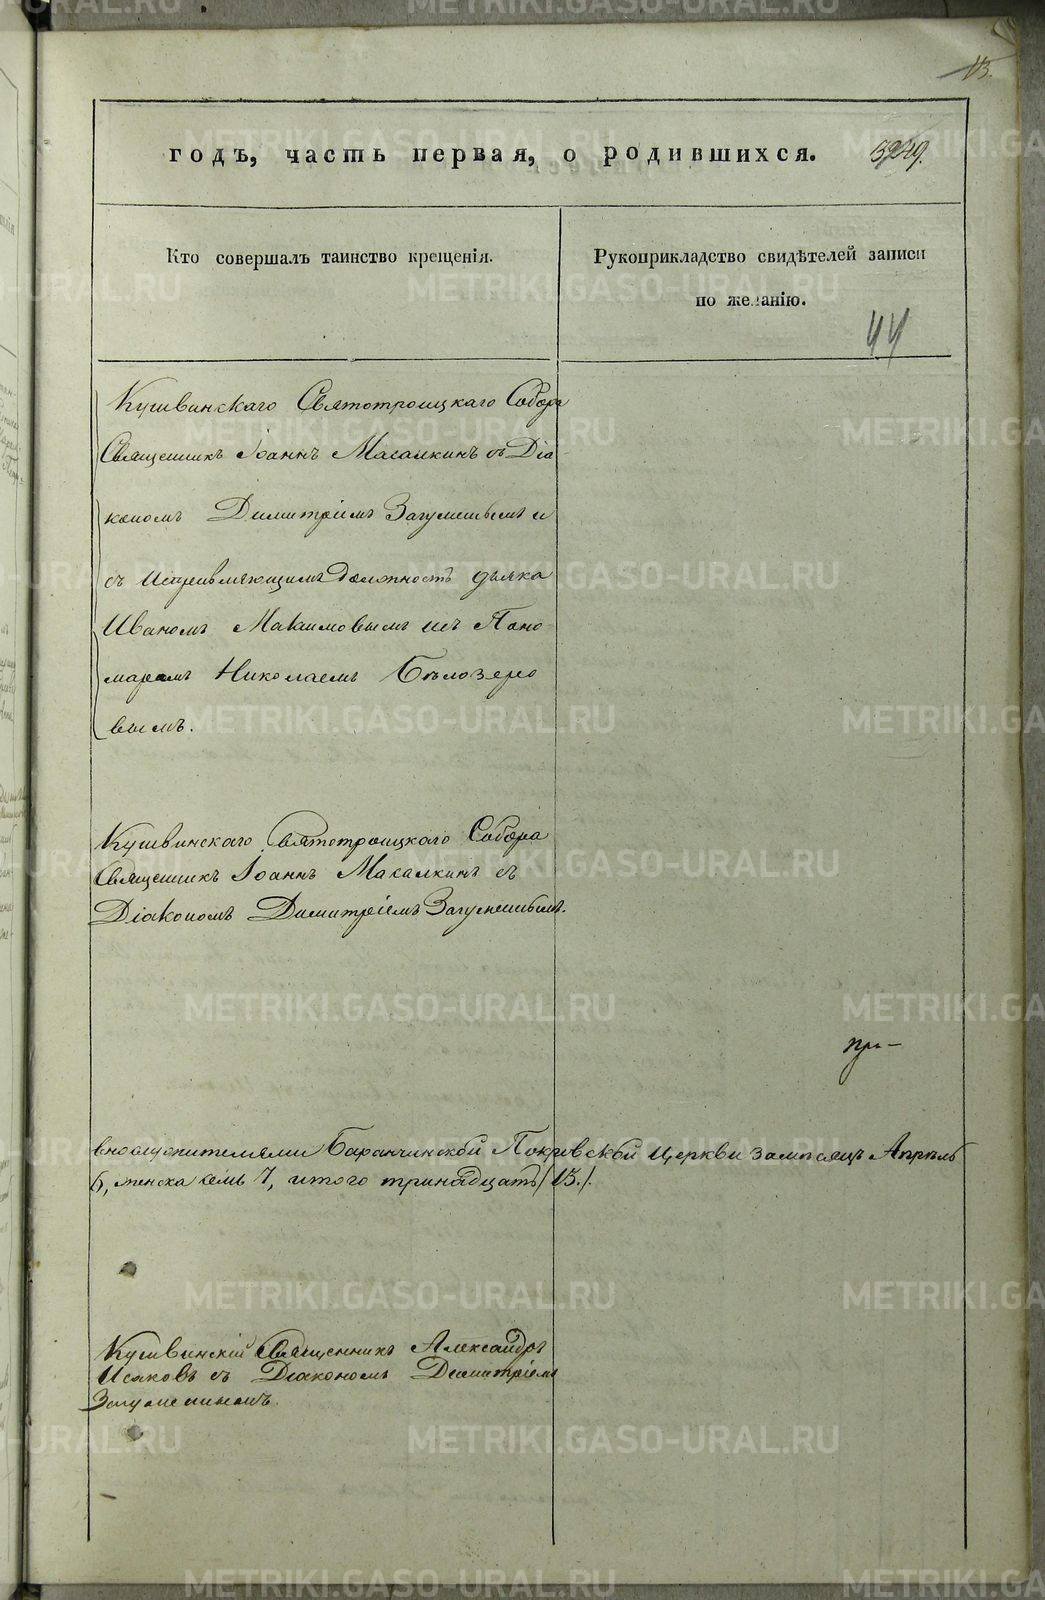 13.
годъ, часть первая, о родившихся.
Кто совершалъ таинство крещенія.
Рукоприкладство свидѣтелей записи
по желанію.
44
Кушвинскаго Святотроицкаго Собора
Священникъ Іоаннъ Масалкинъ съ Діа-
кономъ Димитріемъ Загуменнымъ и
съ исправляющимъ должность дьячка
Иваномъ Макимовымъ и съ Поно-
маремъ Николаемъ Бѣлозеро
вымъ.
Кушвинскаго Святотроицкаго Собора
Священникъ Іоаннъ Масалкинъ съ
Діакономъ Димитріемъ Загуменнымъ.
при-
Баранчинской Покровской Церкви за мѣсяцъ Апрѣль
6, женска семь 7, итого тринадцать /13./.
Кушвинскій Священникъ Александръ
Исаковъ съ Діакономъ Димитріемъ
Загуменнымъ.
METRIKI.GASO-URAL.RU